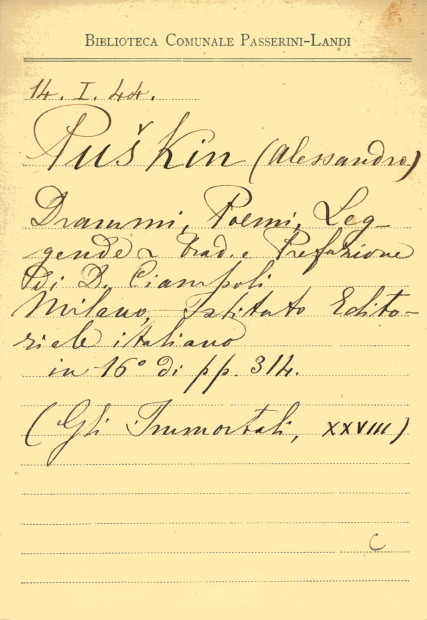 BIBLIOTECA COMUNALE PASSERINI-LANDI
14. I. 44.
Puškin (Alessandro)
Drammi, Poemi, Leg-
gende ~ Trad. e Prefazione
di D. Ciampoli
Milano, Istituto Edito-
riale italiano
in 16° di pp. 314.
(Gli Immortali, XXVIII)
C